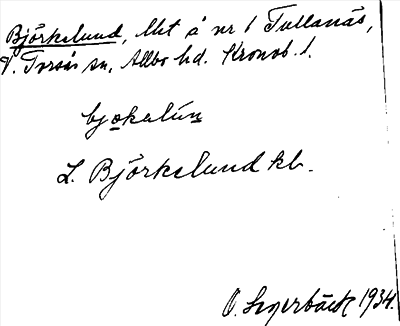 Björkelund, lht å nr 1 Tullanäs,
V. Torsås sn, Allbo hd. Kronob. l.
bjo̲kalún̲
L. Björkelund kb.
O. Segerbäck 1934.